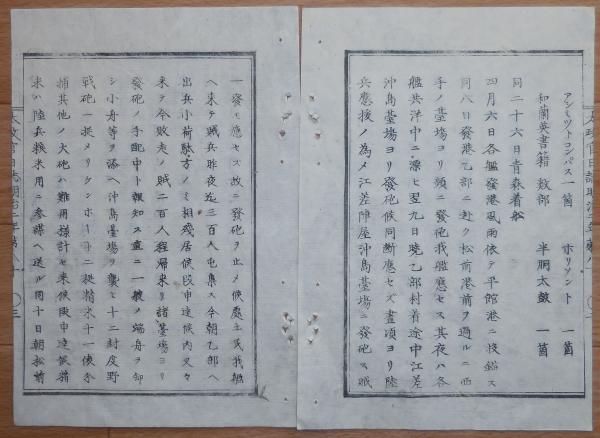 アシミツトコンパス 一箇 ホリソント 一箇
和蘭英書籍 数部 半胴太鼓 一箇
同二十六日青森着船
四月六日各艦發港風雨依テ平館港ニ投錨ス
同八日發港乙部ニ赴ク松前港前ヲ過ルニ西
手ノ臺場ヨリ頻ニ發砲我艦應セス其夜ハ各
艦共洋中ニ漂ヒ翌九日曉乙部村着途中江差
沖島臺場ヨリ發砲候同断應セス晝頃ヨリ陸
兵應援ノ為メ江差陣屋沖島臺場ニ發砲ス賊
一發モ應セス故ニ發砲ヲ止メ候處土民我艦
ヘ来テ賊兵昨夜迄三百人屯集ス今朝乙部ヘ
出兵小荷駄方ノミ相残居候段申達候内又々
来テ今敗走ノ賊二百人程歸来リ諸臺場ヨリ
發砲ノ手配中ト報知ス直ニ一艘ノ端舟ヲ卸
シ小舟等ヲ添ヘ沖島臺場ヲ襲ヒ十二封度野
戰砲一挺メリケンボート二挺精米十一俵分
捕其他ノ大砲ハ難用様計セ来候段申達候前
米ハ陸兵粮米用ニ参謀ヘ送ル同十日朝松前
太政官日誌明治二年第八 〇三